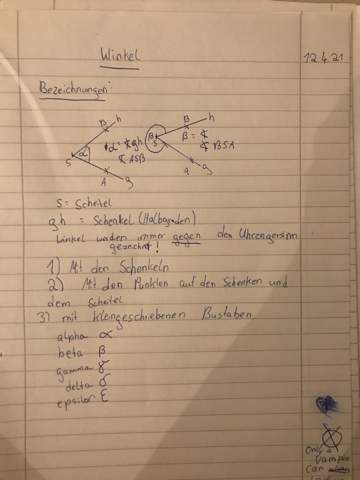 Winkel
12.4.21
Bezeichnungen:
B h
S α α = ∢ gh
∢ ASB
A g
B h
β S β = ∢
∢ BSA
A g
S = Scheitel
g h = Schenkel (Halbgeraden)
Winkel werden immer gegen den Uhrzeigersinn
gezeichnet!
1) Mit den Schenkeln
2) Mit den Punkten auf den Schenken und
dem Scheitel
3) mit kleingeschriebenen Bustaben
alpha α
beta β
gamma γ
delta δ
epsilon ε
Only a
Vampire
Can